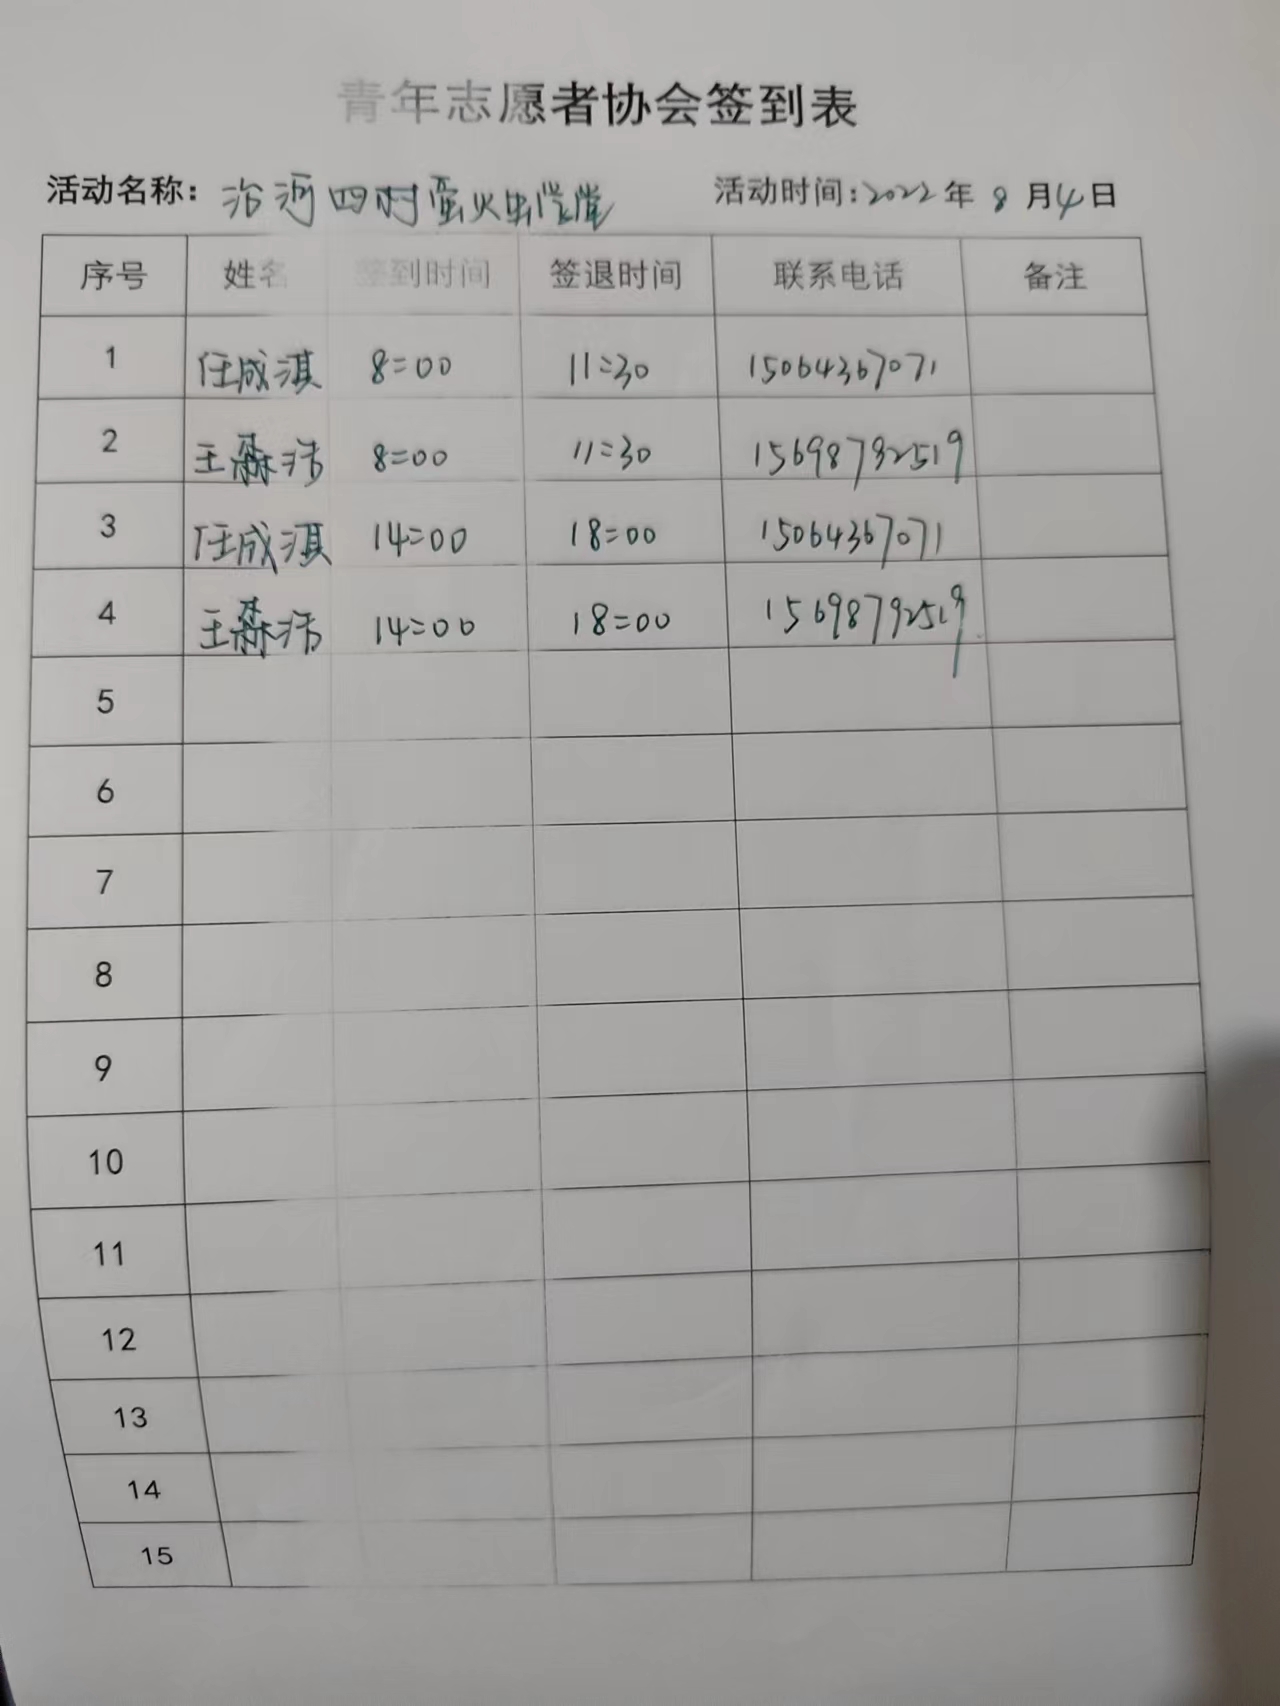 青年志愿者协会签到表
活动名称: 沿河四时萤火虫课堂 活动时间:2022年 8月4日
序号 姓名 签到时间 签退时间 联系电话 备注
1 任成淇 8:00 11:30 15064367071
2 王淼浩 8:00 11:30 15698792519
3 任成淇 14:00 18:00 15064367071
4 王淼浩 14:00 18:00 15698792519
5
6
7
8
9
10
11
12
13
14
15